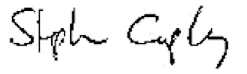 Stephen Copley